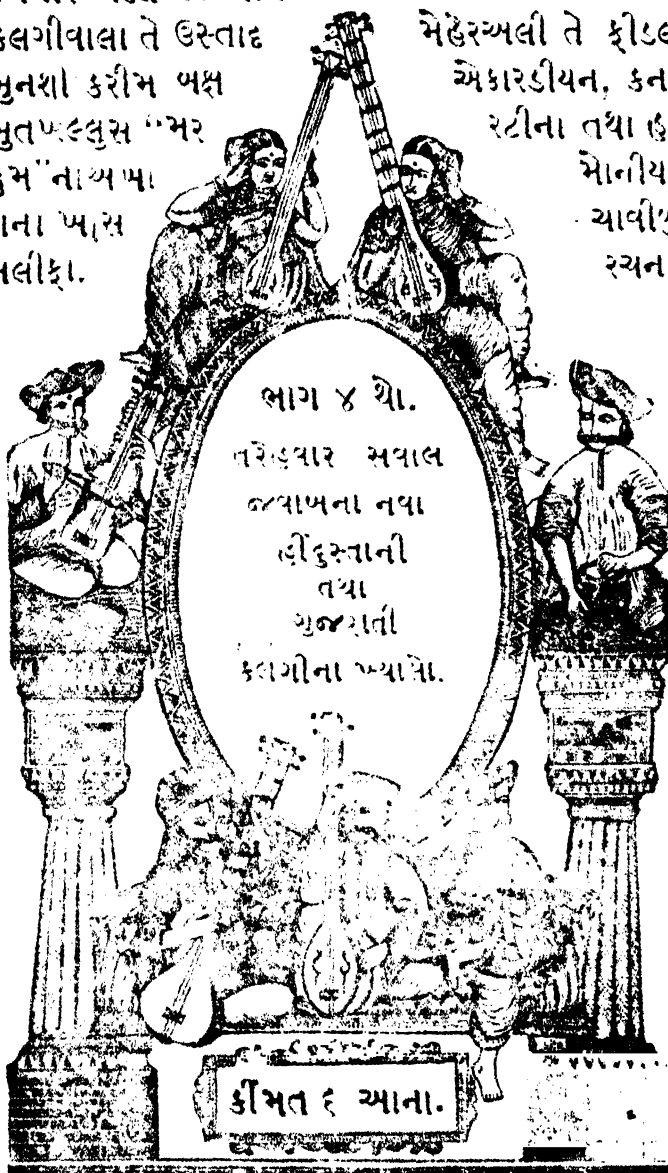 કલગીવાલા તે ઉસ્તાદ
મુનશી કરીમ બક્ષ
મુતખલ્લુસ “મર
હુમ”નાઅખા
ના ખાસ
ખલીફા.
મેહેરઅલી તે ફીડલ
એકારડીયન, કન
રટીના તથા હ
મોનીય
રચન
ભાગ ૪ થો.
તરેહવાર સવાલ
જવાબના નવા
હીંદુસ્તાની
તથા
ગુજરાતી
કલગીના ખ્યાલો.
કીંમત ૬ આના.